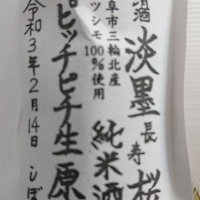 酒
淡墨桜
長寿
阜市三輪北産
ツシモ100%使用
純米酒
ピッチピチ生原
令和3年2月14日 しぼ